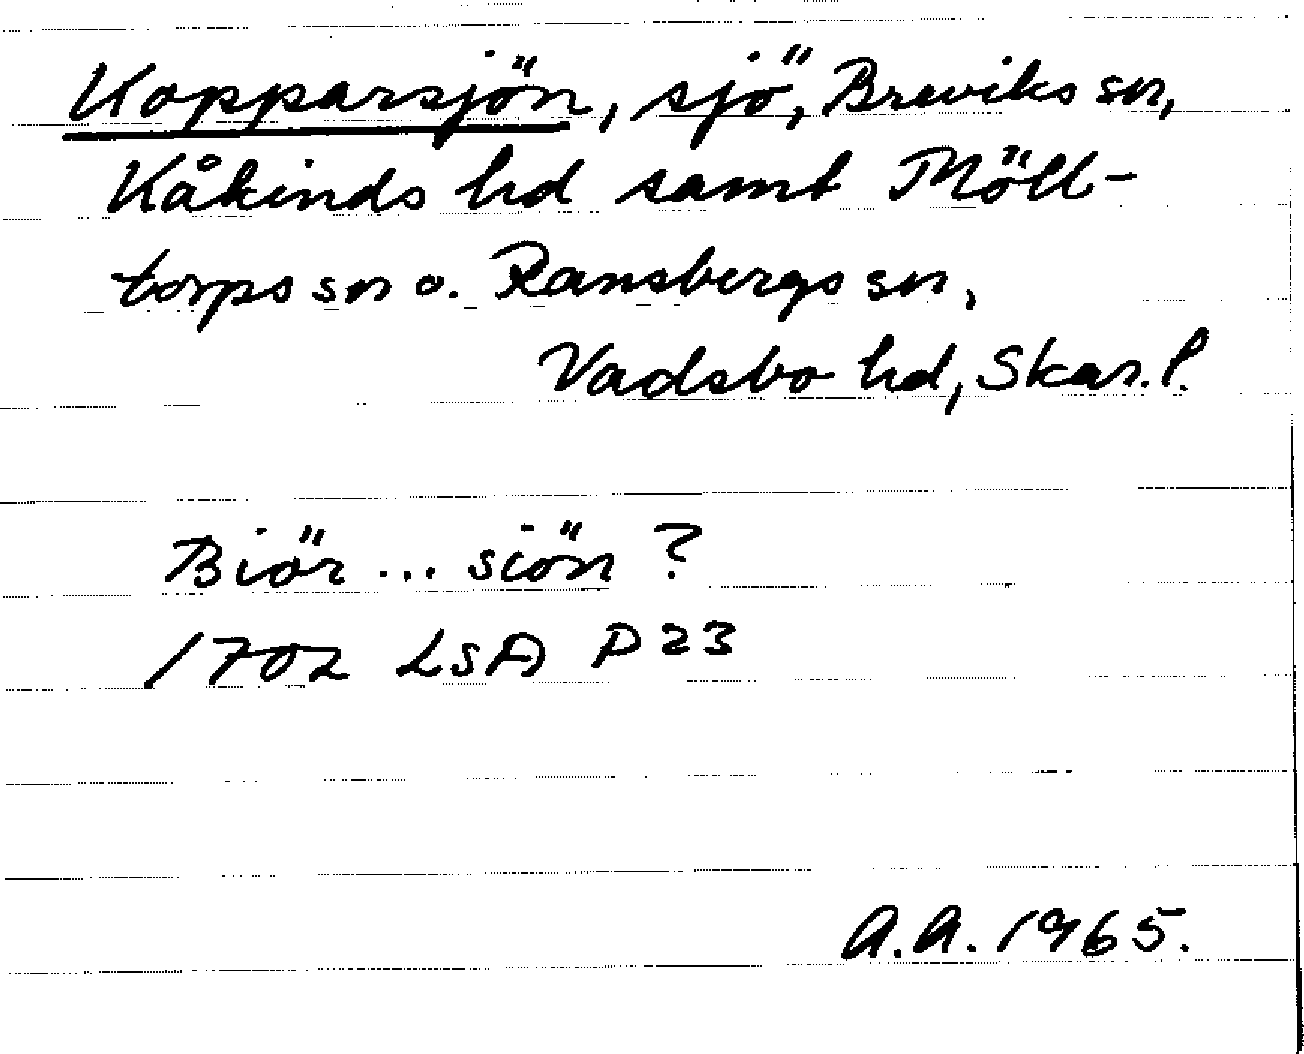 Kopparsjön, sjö, Breviks sn,
Kåkinds hd samt Möll-
torps sn o. Ransbergs sn,
Vadsbo hd, Skar. l.
Biör... siön ?
1702 LSA P 23
A.A. 1965.